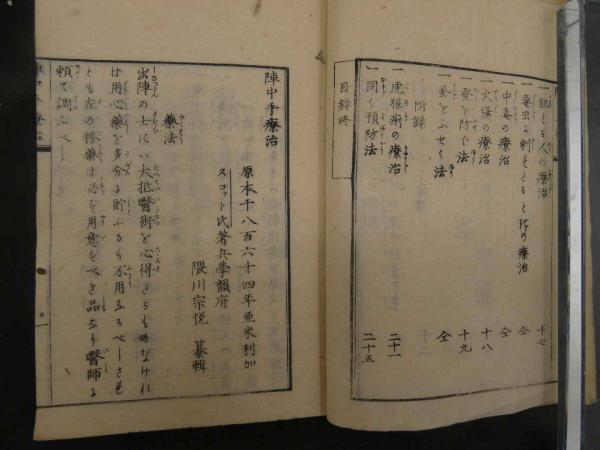 一 飢たる人の療治 十七
毒虫に刺れたるときの療治 仝
一 中毒の療治 仝
一 火傷の療治 十八
一 蚤を防ぐ法 十九
一 虱をふせぐ法 仝
附録
一 虎狼痢の療治 二十一
一 同く預防法 二十五
目録終
陣中手療治
原本千八百六十四年亜米利加
スコット氏著兵學韻府
隈川宗悦 纂輯
藥法
出陣の士にハ大抵醫術を心得さるものなけれ
は用心藥を多分に貯ふるも不用なるべしされ
とも左の諸藥は必を用意をべき品なり醫師に
頼て調ふべし